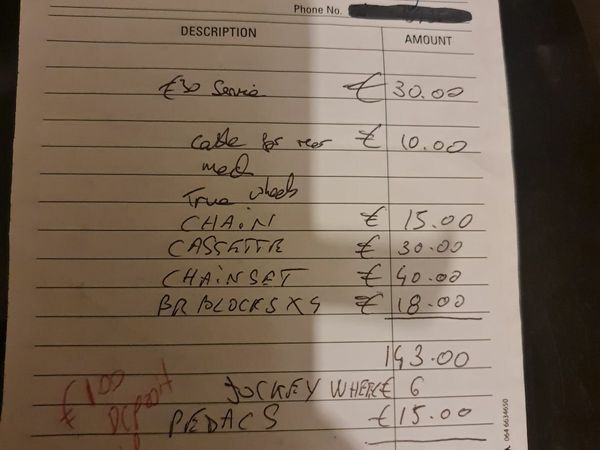 Phone No.
DESCRIPTION AMOUNT
£30 Service £ 30.00
Cable for rear £ 10.00
mech
True wheels
CHAIN £ 15.00
CASSETTE £ 30.00
CHAINSET £ 40.00
BR BLOCKS X 4 £ 18.00
143.00
JOCKEY WHEEL £ 6
PEDALS £15.00
£100
DEPOSIT
064 6634650